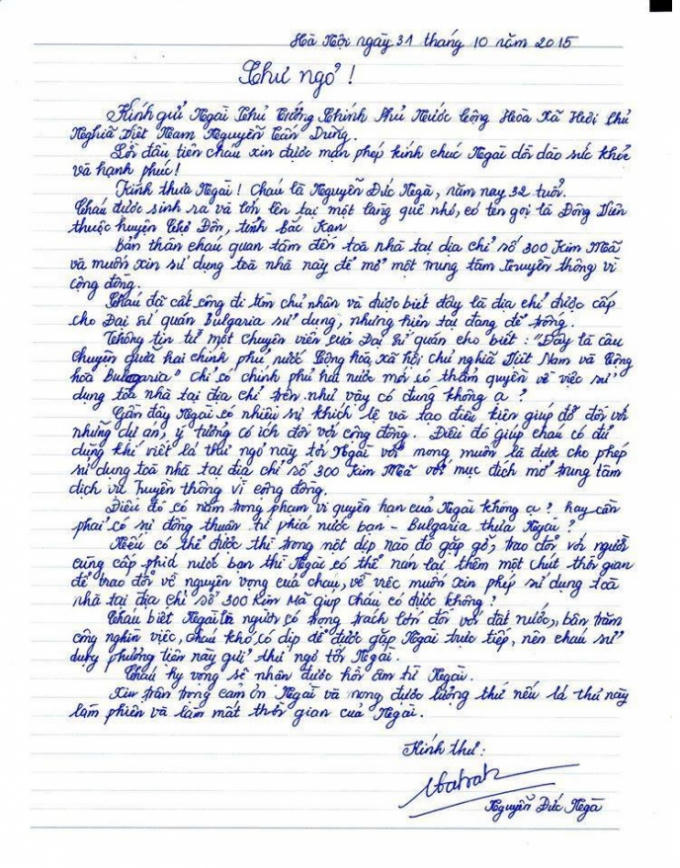 Hà Nội ngày 31 tháng 10 năm 2015
Thư ngỏ !
Kính gửi Ngài Thủ Tướng Chính Phủ Nước Cộng Hòa Xã Hội Chủ
Nghĩa Việt Nam Nguyễn Tấn Dũng.
Lời đầu tiên cháu xin được mạn phép kính chúc Ngài dồi dào sức khỏe
và hạnh phúc !
Kính thưa Ngài ! Cháu là Nguyễn Đức Ngà, năm nay 32 tuổi.
Cháu được sinh ra và lớn lên tại một làng quê nhỏ, có tên gọi là Đông Viên
thuộc huyện Chợ Đồn, tỉnh Bắc Kạn
Bản thân cháu quan tâm đến toà nhà tại địa chỉ số 300 Kim Mã
và muốn xin sử dụng toà nhà này để mở một trung tâm truyền thông vì
cộng đồng.
Cháu đã cất công đi tìm chủ nhân và được biết đây là địa chỉ được cấp
cho Đại sứ quán Bulgaria sử dụng, nhưng hiện tại đang để trống.
Thông tin từ một chuyên viên của Đại sứ quán cho biết : "Đây là câu
chuyện giữa hai chính phủ nước Cộng hòa xã hội chủ nghĩa Việt Nam và Cộng
hòa Bulgaria" Chỉ có chính phủ hai nước mới có thẩm quyền về việc sử
dụng toà nhà tại địa chỉ trên như vậy có đúng không ạ ?
Gần đây Ngài có nhiều sự khích lệ và tạo điều kiện giúp đỡ đối với
những dự án, ý tưởng có ích đối với cộng đồng. Điều đó giúp cháu có đủ
dũng khí viết lá thư ngỏ này tới Ngài với mong muốn là được cho phép
sử dụng toà nhà tại địa chỉ số 300 Kim Mã với mục đích mở trung tâm
dịch vụ truyền thông vì cộng đồng.
Điều đó có nằm trong phạm vi quyền hạn của Ngài không ạ ? hay cần
phải có sự đồng thuận từ phía nước bạn - Bulgaria thưa Ngài ?
Nếu có thể được thì trong một dịp nào đó gặp gỡ, trao đổi với người
cùng cấp phía nước bạn thì Ngài có thể nán lại thêm một chút thời gian
để trao đổi về nguyện vọng của cháu, về việc muốn xin phép sử dụng toà
nhà tại địa chỉ số 300 Kim Mã giúp Cháu có được không ?
Cháu biết Ngài là người có trọng trách lớn đối với đất nước, bận trăm
công nghìn việc, cháu khó có dịp để được gặp Ngài trực tiếp, nên cháu sử
dụng phương tiện này gửi thư ngỏ tới Ngài.
Cháu hy vọng sẽ nhận được hồi âm từ Ngài.
Xin trân trọng cảm ơn Ngài và mong được lượng thứ nếu lá thư này
làm phiền và làm mất thời gian của Ngài.
Kính thư :
Nguyễn Đức Ngà